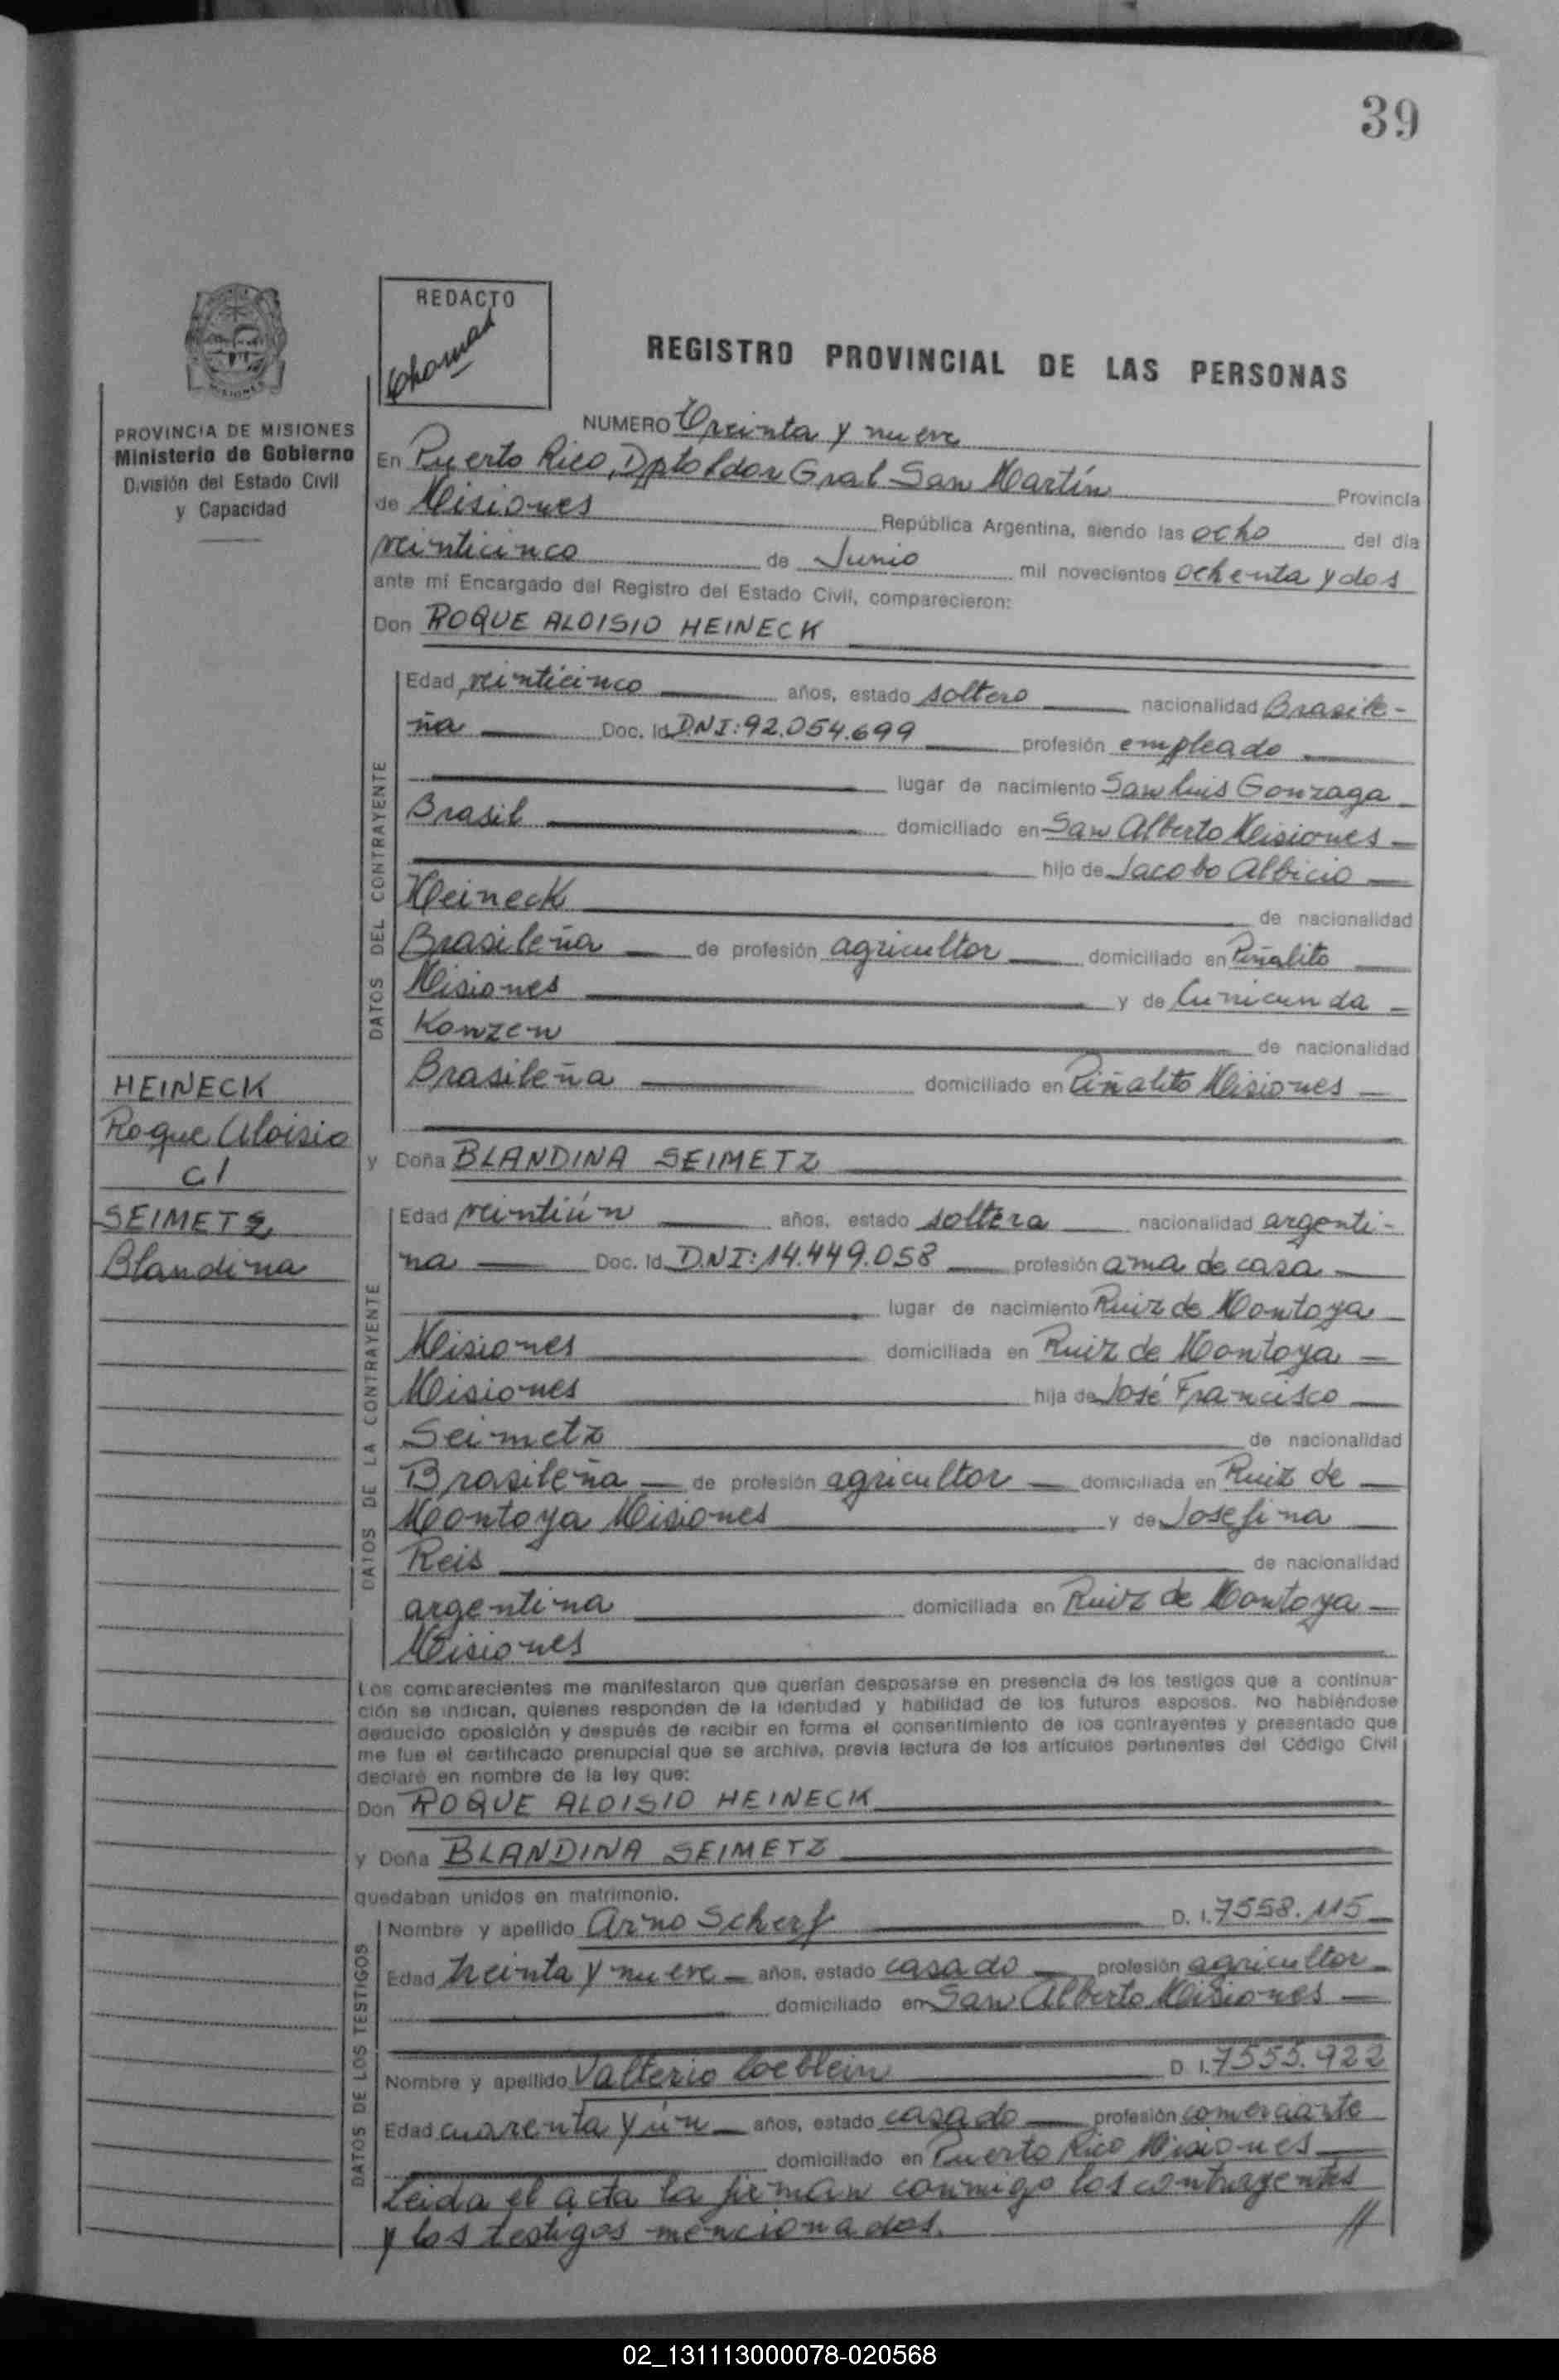 39
REDACTO
REGISTRO PROVINCIAL DE LAS PERSONAS
MISIONES
PROVINCIA DE MISIONES
Ministerio de Gobierno
División del Estado Civil
y Capacidad
NUMERO Treinta y nueve
En Puerto Rico, Dpto Ldor Gral San Martín Provincia
de Misiones República Argentina, siendo las ocho del día
veinticinco de Junio mil novecientos ochenta y dos
ante mí Encargado del Registro del Estado Civil, comparecieron:
Don ROQUE ALOISIO HEINECK
DATOS DEL CONTRAYENTE
Edad veinticinco años, estado soltero nacionalidad Brasile-
ña Doc. Id. DNI: 92.054.699 profesión empleado
lugar de nacimiento San Luis Gonzaga
Brasil domiciliado en San Alberto Misiones
hijo de Jacobo Albicio
Heineck de nacionalidad
Brasileña de profesión agricultor domiciliado en Piñalito
Misiones y de Cunicunda
Konzen de nacionalidad
Brasileña domiciliado en Piñalito Misiones
HEINECK
Roque Aloisio
c/
SEIMETZ
Blandina
y Doña BLANDINA SEIMETZ
DATOS DE LA CONTRAYENTE
Edad veintiún años, estado soltera nacionalidad argenti-
na Doc. Id. D.N.I: 14.449.058 profesión ama de casa
lugar de nacimiento Ruiz de Montoya
Misiones domiciliada en Ruiz de Montoya
Misiones hija de José Francisco
Seimetz de nacionalidad
Brasileña de profesión agricultor domiciliada en Ruiz de
Montoya Misiones y de Josefina
Reis de nacionalidad
argentina domiciliada en Ruiz de Montoya
Misiones
Los comparecientes me manifestaron que querían desposarse en presencia de los testigos que a continua-
ción se indican, quienes responden de la identidad y habilidad de los futuros esposos. No habiéndose
deducido oposición y después de recibir en forma el consentimiento de los contrayentes y presentado que
me fue el certificado prenupcial que se archiva, previa lectura de los artículos pertinentes del Código Civil
declaré en nombre de la ley que:
Don ROQUE ALOISIO HEINECK
y Doña BLANDINA SEIMETZ
quedaban unidos en matrimonio.
DATOS DE LOS TESTIGOS
Nombre y apellido Arno Scherf D. I. 7558.115
Edad treinta y nueve años, estado casado profesión agricultor
domiciliado en San Alberto Misiones
Nombre y apellido Valterio Loeblein D. I. 7555.922
Edad cuarenta y ún años, estado casado profesión comerciante
domiciliado en Puerto Rico Misiones
Leida el acta la firman conmigo los contrayentes
y los testigos mencionados. //
02_131113000078-020568